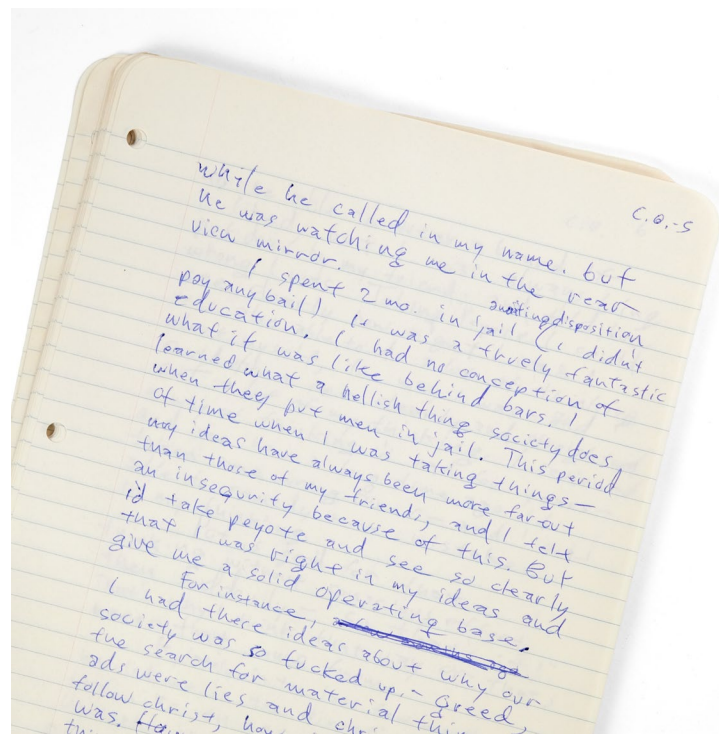 C.O.-5
while he called in my name. but
he was watching me in the rear
view mirror.
I spent 2 mo. in jail (awaiting disposition I didn't
pay any bail) It was a truely fantastic
education. I had no conception of
what it was like behind bars. I
learned what a hellish thing society does
when they put men in jail. This period
of time when I was taking things—
my ideas have always been more far-out
than those of my friends, and I felt
an insequrity because of this. But
i'd take peyote and see so clearly
that I was right in my ideas and
give me a solid operating base.
For instance,
I had these ideas about why our
society was so fucked up,- Greed,
the search for material
ads were lies and
follow christ,
was.